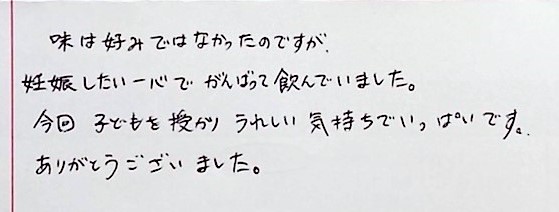 味は好みではなかったのですが、
妊娠したい一心で がんばって飲んでいました。
今回 子どもを授かり うれしい 気持ちでいっぱいです。
ありがとうございました。